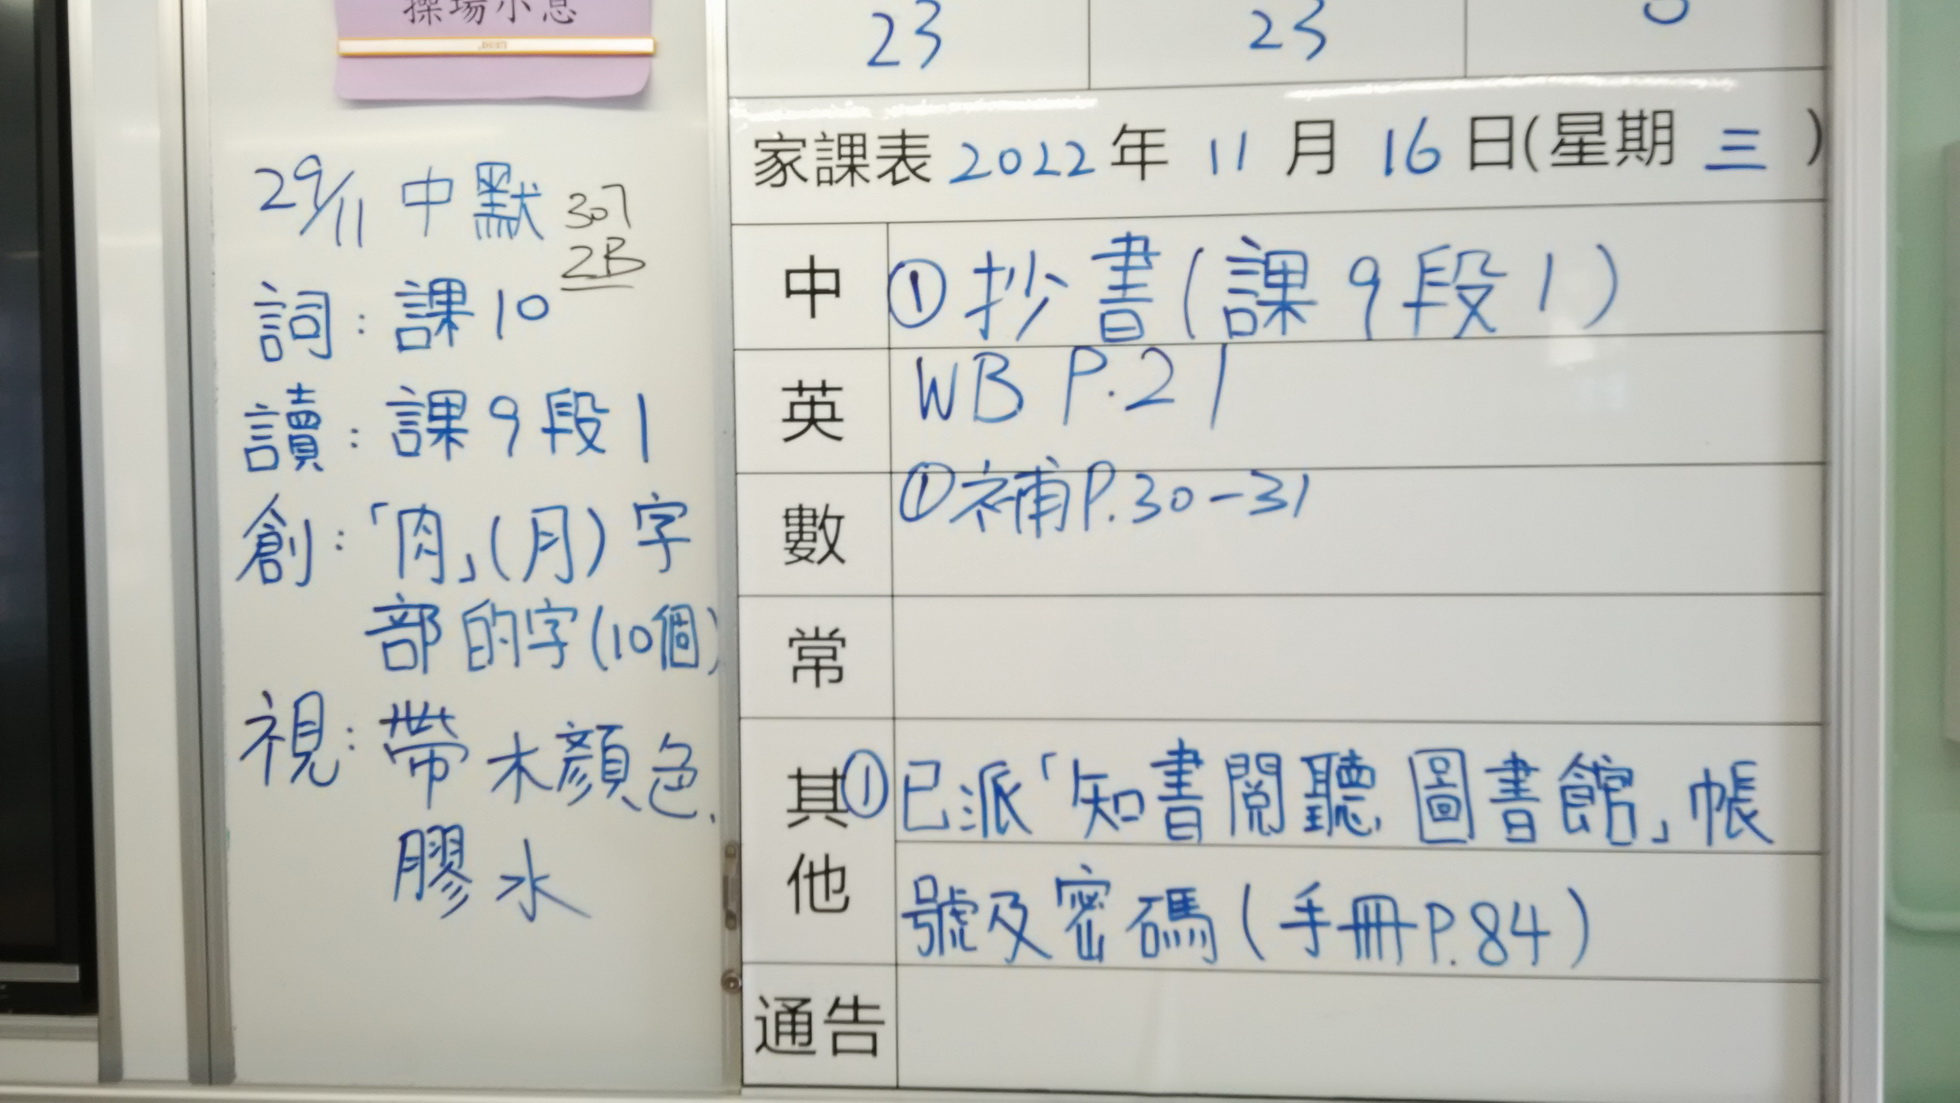 操場小息
29/11 中默 307
2B
詞：課10
讀：課9段1
創：「肉」(月)字
部的字(10個)
視：帶木顏色.
膠水
23 23
家課表 2022年 11月 16日(星期三)
中 ①抄書(課9段1)
英 WB P.21
數 ①補P.30-31
常
其他 ①已派「知書閱聽圖書館」帳
號及密碼(手冊P.84)
通告